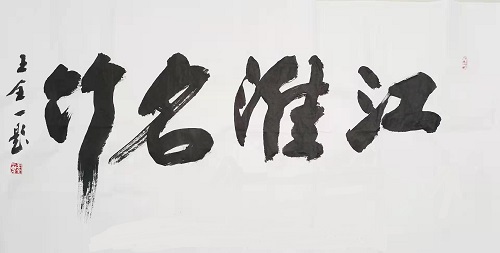 江淮名竹
王金一题